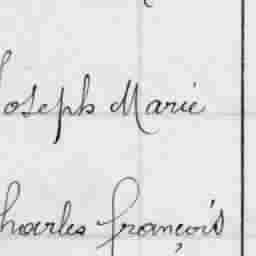 Joseph Marie
Charles François